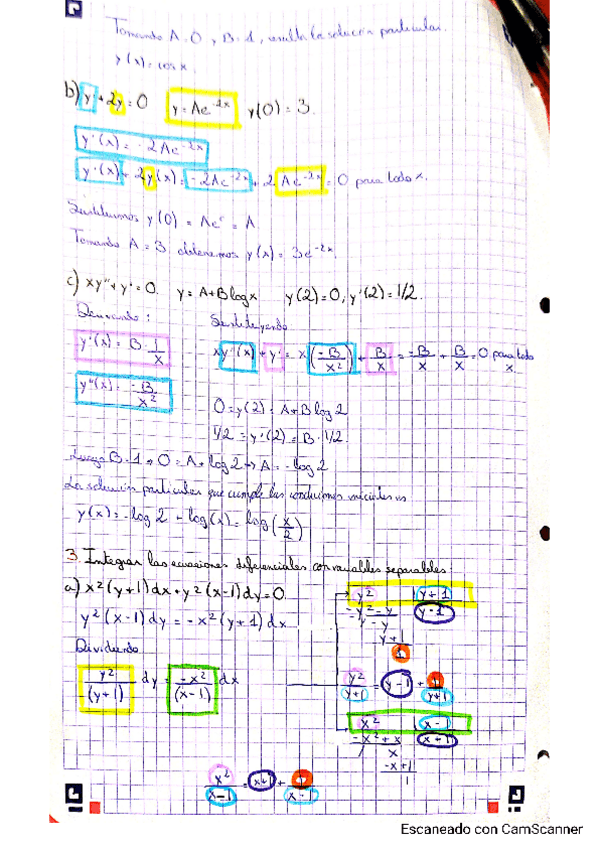 Tomando A=0, B=1, resulta la solución particular.
y(x)=cos x.
b) y'+2y=0 y=Ae^-2x y(0)=3.
y'(x)=-2Ae^-2x
y'(x)+2y(x)=-2Ae^-2x+2Ae^-2x=0 para todo x.
Sustituimos y(0)=Ae^0=A
Tomando A=3 obtenemos y(x)=3e^-2x.
c) xy''+y'=0. y=A+Blogx y(2)=0, y'(2)=1/2.
Derivando: Sustituyendo
y'(x)=B·1/x
xy''(x)+y'=x(-B/x²)+B/x=-B/x+B/x=0 para todo x.
y''(x)=-B/x²
0=y(2)=A+Blog2
1/2=y'(2)=B·1/2.
Luego B=1→0=A+log2→A=-log2
La solución particular que cumple las condiciones iniciales es
y(x)=-log2+log(x)=log(x/2)
3. Integrar las ecuaciones diferenciales con variables separables:
a) x²(y+1)dx+y²(x-1)dy=0
y²(x-1)dy=-x²(y+1)dx
Dividiendo
y²/(y+1) dy=-x²/(x-1) dx
y² y+1
-y²-y y-1
-y
y+1
1
y²/y+1=y-1+1/y+1
x² x-1
-x²+x x+1
x
-x+1
1
x²/x-1=x+1+1/x-1
Escaneado con CamScanner